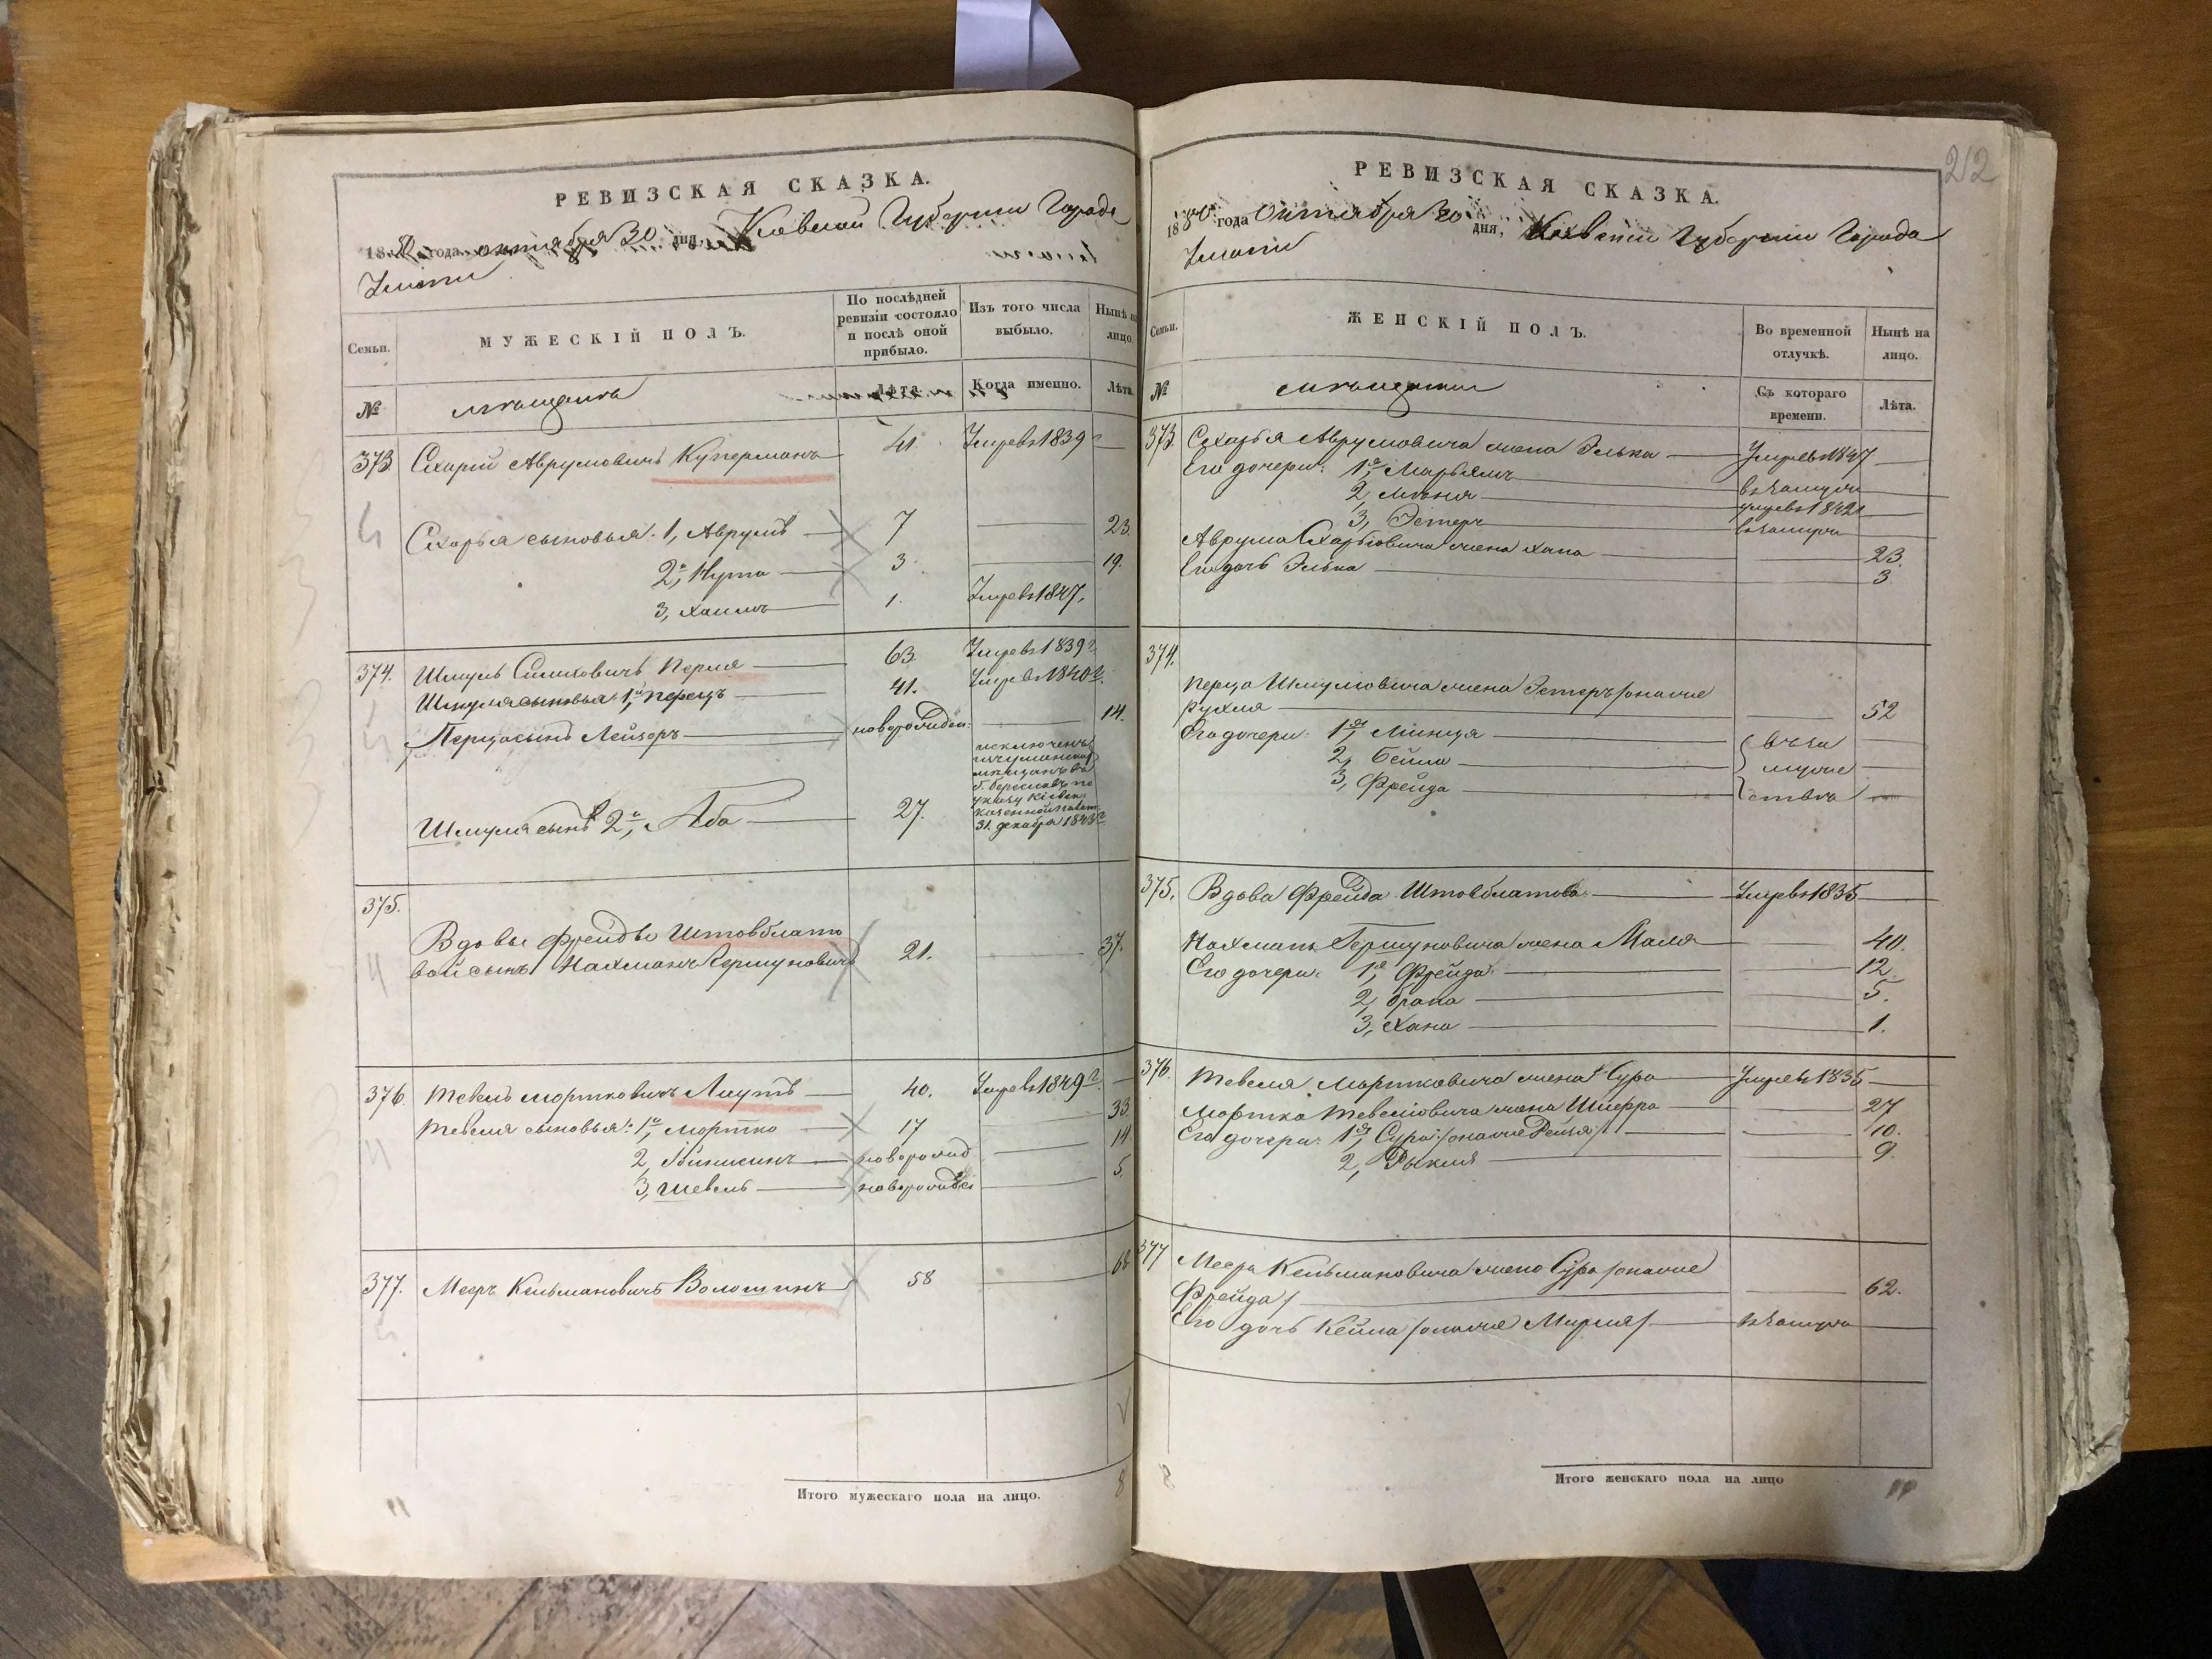 РЕВИЗСКАЯ СКАЗКА.
1850 года октября 30 дня, Киевской Губернии Города
Умани
Семьи.
МУЖЕСКІЙ ПОЛЪ.
По послѣдней ревизіи состояло и послѣ оной прибыло.
Изъ того числа выбыло.
Нынѣ на лицо.
№
мѣщане
Лѣта.
Когда именно.
Лѣта.
373 Сахарій Аврумовичъ Куперманъ 41. Умре въ 1839 г
Сахарія сыновья: 1, Аврумъ 7 23.
2й, Нута 3. 19.
3, Хаимъ 1. Умре въ 1847.
374. Шмуль Перля 63. Умре въ 1839 г
Шмуля сыновья: 1й, Перецъ 41. Умре въ 1840 г.
Перца сынъ Лейзоръ новорожден. 14.
Шмуля сынъ 2й, Аба 27. исключенъ
мѣщанъ въ
по
указу Кіевск.
казенной палат.
31. декабря 1843 г.
375.
Вдовы Фрейды Штовблато
вой сынъ Нахманъ Гершуновичъ 21. 37.
376. Тевель Мортковичъ Лаутъ 40. Умре въ 1849 г.
Тевеля сыновья: 1й, Мортко 17 33
2, новорожд 14
3, Шевель новорожден 5.
377. Мееръ Кельмановичъ Волошинъ 58
Итого мужескаго пола на лицо. 8
212
РЕВИЗСКАЯ СКАЗКА.
1850 года октября 30 дня, Киевской Губернии Города
Умани
Семьи.
ЖЕНСКІЙ ПОЛЪ.
Во временной отлучкѣ.
Нынѣ на лицо.
№
мѣщане
Съ котораго времени.
Лѣта.
373. Сахарія Аврумовича жена Элька Умре въ 1847
Его дочери: 1я, Марьямъ въ замуж
2, умре въ 1842
3, Эстеръ въ замуж
Аврума Сахарьовича жена Хана 23.
Его дочь Элька 3.
374.
Перца Шмулiовича жена Эстеръ /онаже
Рухля 52
Его дочери: 1я, въ за
2, Бейла муже
3, Фрейда ствѣ
375. Вдова Фрейда Штовблатова Умре въ 1835
Нахмана Гершуновича жена Маля 40.
Его дочери: 1я, Фрейда 12.
2, Брана 5.
3, Хана 1.
376. Тевеля Мортковича жена Сура Умре въ 1835
Мортка Тевелiовича жена Шифра 27
Его дочери: 1я, Сура /онаже Рейзя/ 10.
2, Рыкля 9.
377 Меера Кельмановича жена Сура /онаже
Фрейда/ 62.
Его дочь Кейла /онаже Мирля/ въ замуж
Итого женскаго пола на лицо